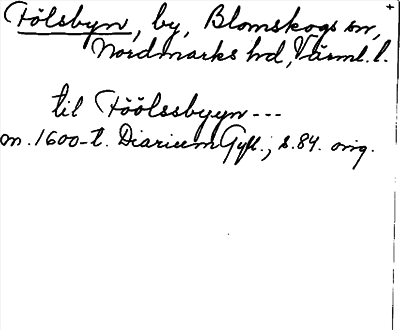 Fölsbyn, by, Blomskogs sn,
Nordmarks hd, Värml. l.
til Föölssbyyn ---
m. 1600-t. Diarium Gyll., s. 84. orig.